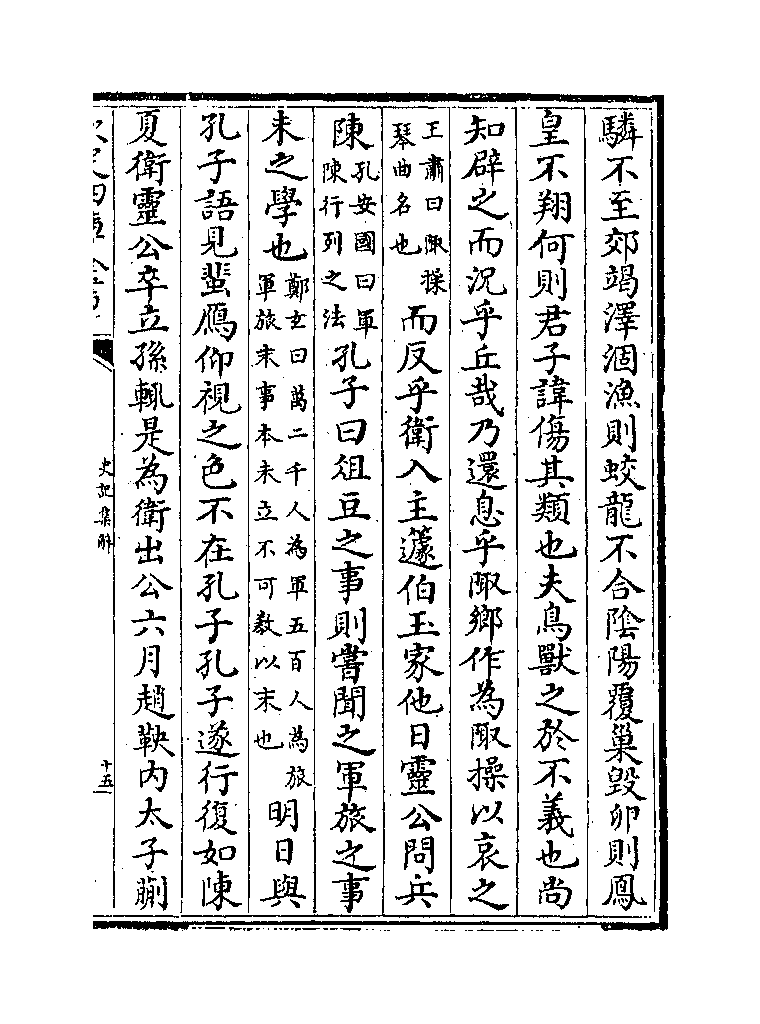 驎不至郊竭澤涸漁則蛟龍不合陰陽覆巢毁卵則鳳
皇不翔何則君子諱傷其類也夫鳥獸之於不義也尚
知辟之而況乎丘哉乃還息乎陬鄉作為陬操以哀之
王肅曰陬操
琴曲名也
而反乎衛入主蘧伯玉家他日靈公問兵
陳
孔安國曰軍
陳行列之法
孔子曰俎豆之事則嘗聞之軍旅之事
未之學也
鄭玄曰萬二千人為軍五百人為旅
軍旅末事本未立不可教以末也
明日與
孔子語見蜚鴈仰視之色不在孔子孔子遂行復如陳
夏衛靈公卒立孫輒是為衛出公六月趙鞅內太子蒯
史記集解
十五